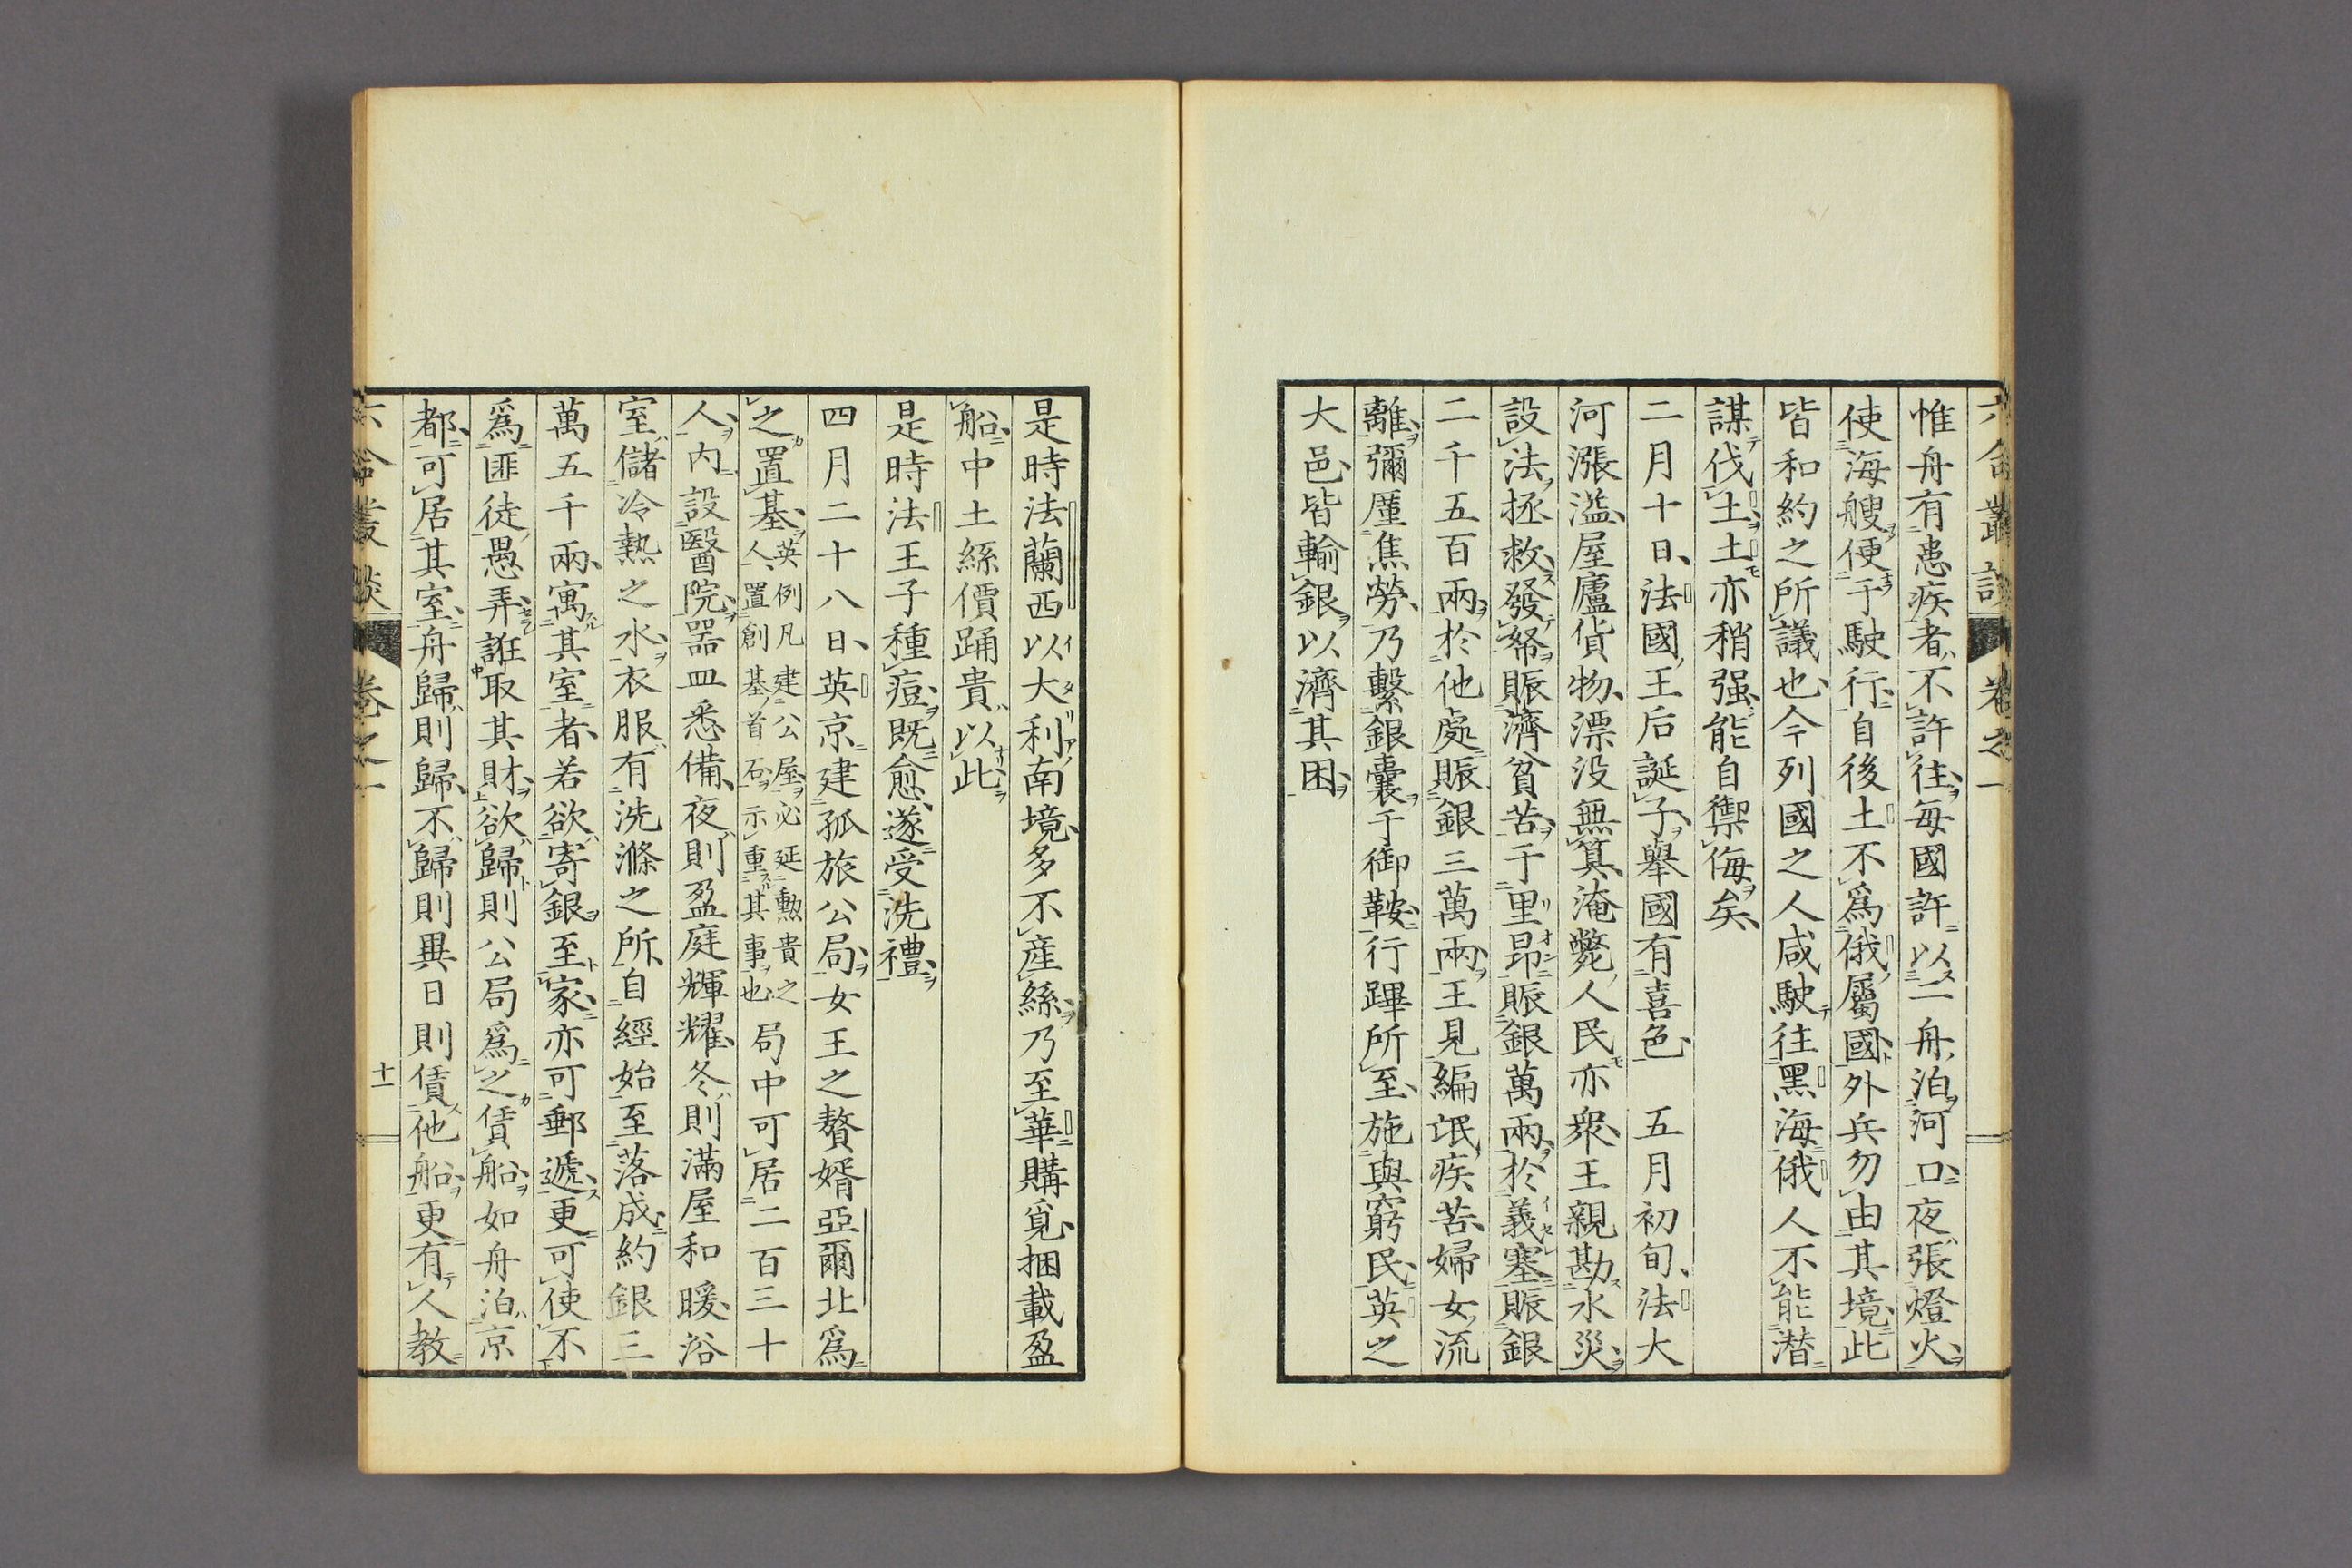 六合叢談 卷之一
惟舟有患疾者不許往每國許以二舟泊河口夜張燈火
使海艘便于駛行自後土不爲俄屬國外兵勿由其境此
皆和約之所議也今列國之人咸駛往黑海俄人不能潛
謀伐土土亦稍强能自禦侮矣
二月十日法國王后誕子舉國有喜色 五月初旬法大
河漲溢屋廬貨物漂没無算淹斃人民亦衆王親勘水災
設法拯救發帑賑濟貧苦于里昂賑銀萬兩於義塞賑銀
二千五百兩於他處賑銀三萬兩王見編氓疾苦婦女流
離彌厪焦勞乃繫銀囊于御鞍行蹕所至施與窮民英之
大邑皆輸銀以濟其困
是時法蘭西以大利南境多不產絲乃至華購覓捆載盈
船中土絲價踊貴以此
是時法王子種痘既愈遂受洗禮
四月二十八日英京建孤旅公局女王之贅婿亞爾北爲
之置基英例凡建公屋必延勳貴之人置創基首石示重其事也局中可居二百三十
人内設醫院器皿悉備夜則盈庭輝耀冬則滿屋和暖浴
室儲冷熱之水衣服有洗滌之所自經始至落成約銀三
萬五千兩寓其室者若欲寄銀至家亦可郵遞更可使不
爲匪徒愚弄誑取其財欲歸則公局爲之賃船如舟泊京
都可居其室舟歸則歸不歸則異日則賃他船更有人教
六合叢談 卷之一 十一